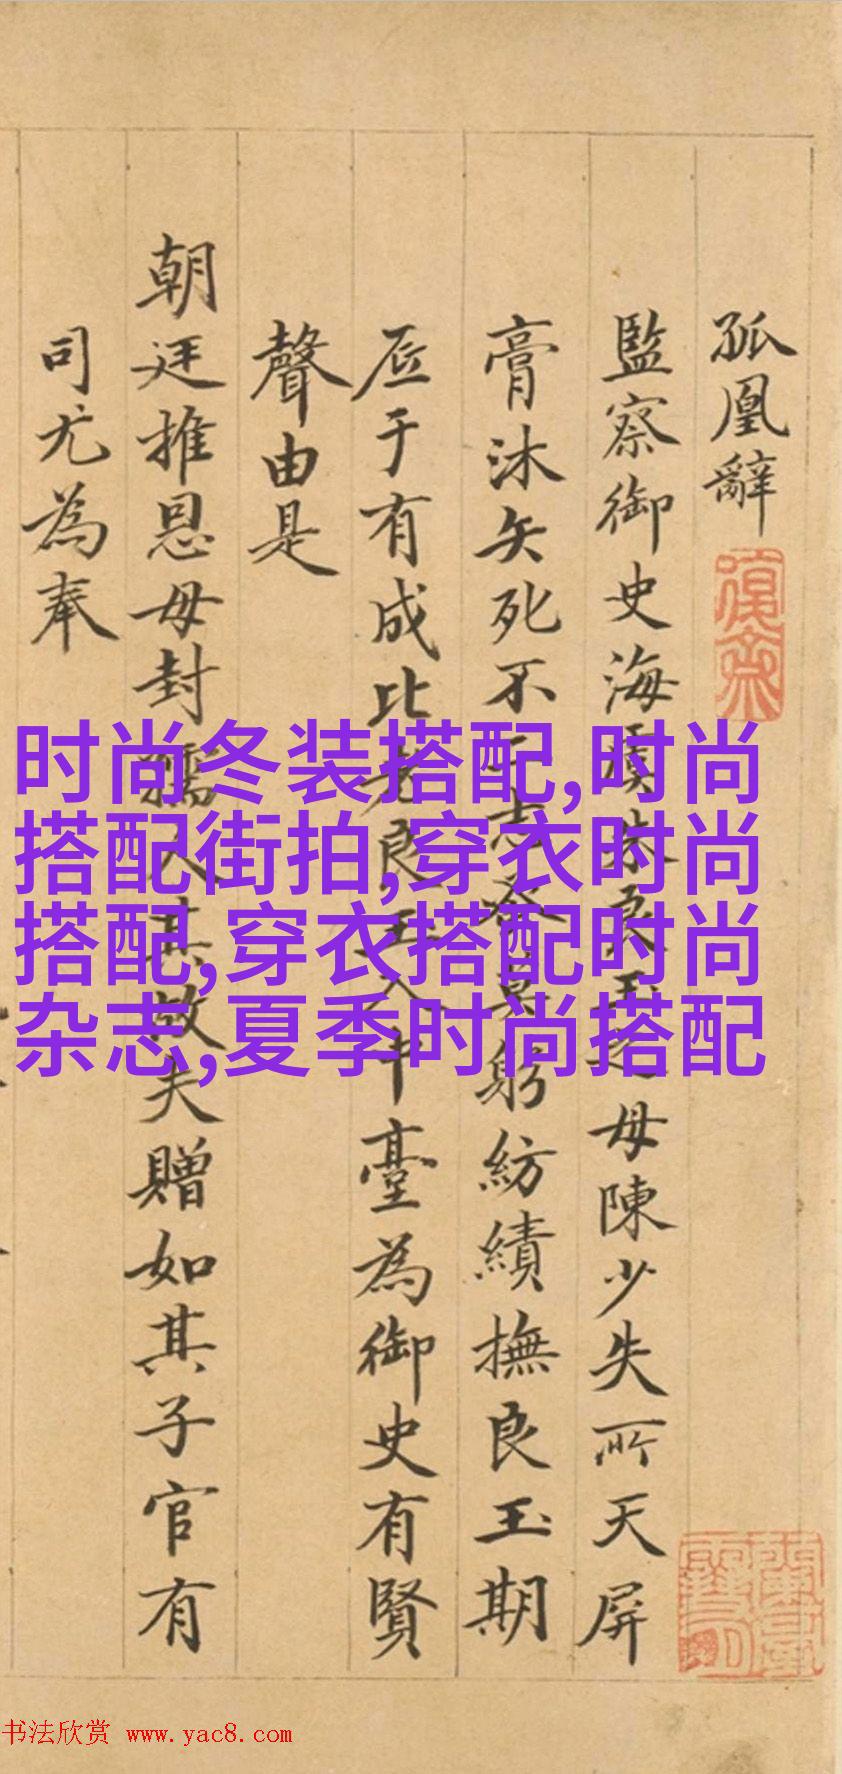 孤凰辭
監察御史海虞朱良玉之母陳少失所天屏
膏沐矢死不二志夜其躬紡績撫良玉期
底于有成比老良玉入中臺為御史有賢
聲由是
朝廷推恩母封孺人其故夫贈如其子官有
司尤為奉
时尚冬装搭配,时尚
搭配街拍,穿衣时尚
搭配,穿衣搭配时尚
杂志,夏季时尚搭配
书法欣赏 www.yac8.com